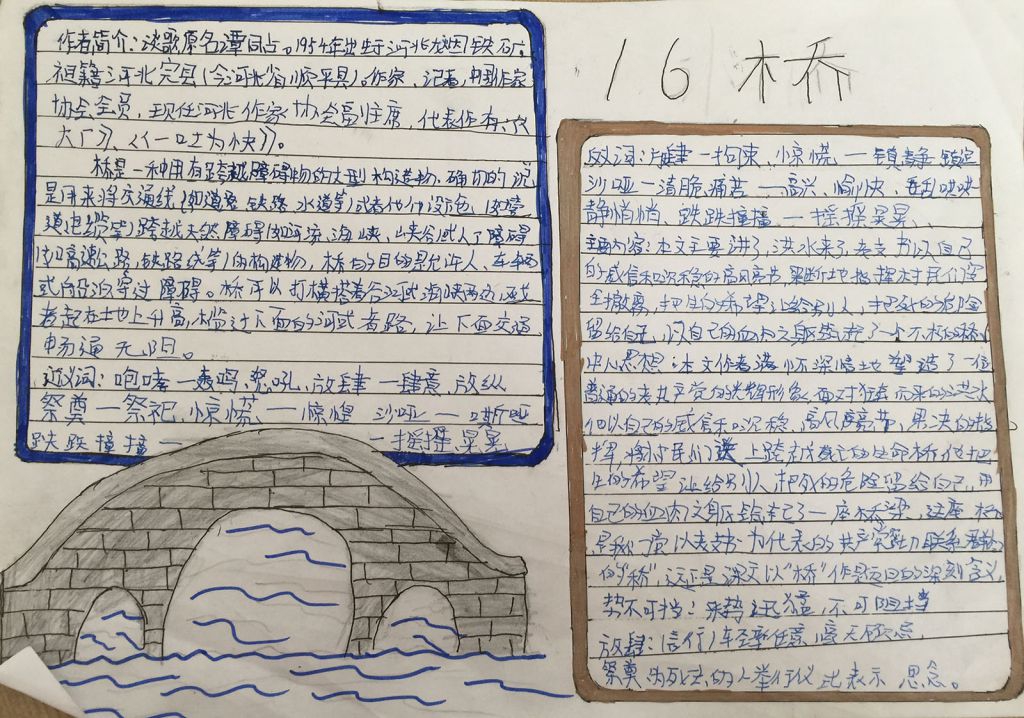 16 木乔
作者简介:谈歌原名谭同占。1954年出生于河北龙烟铁矿。
祖籍河北完县(今河北省顺平县)。作家、记者,中国作家
协会会员,现任河北作家协会副主席,代表作有:《大
大厂》、《一口寸为快》。
桥是一种用有跨越障碍物的大型构造物,确切的说
是用来将交通线(如道路、铁路、水道等)或者他们设施(如管
道电缆等)跨越天然障碍(如河流、海峡、峡谷)或人工障碍
(如高速公路、铁路线等)的构建物,桥的目的是允许人、车辆
或船泊穿过障碍。桥可以打横搭着谷河或海峡两边,或
者起在地上升高,槛过下面的河或者路,让下面交通
畅通无阻。
近义词:咆哮—轰鸣、怒吼、放肆—肆意、放纵
祭奠—祭祀、惊慌—惊惶 沙哑—嘶哑
跌跌撞撞——摇摇晃晃
反词:放肆—拘束、惊慌—镇静 镇定
沙哑—清脆、痛苦—高兴、愉快、乱哄哄
静悄悄、跌跌撞撞—摇摇晃晃、
主要内容:本文主要讲了,洪水来了,老支书以自己
的威信和沉稳的高风亮节,果断地指挥村民们安
全撤离,把生的希望让给别人,把死的危险
留给自己,以自己的血肉之躯筑起了一个不朽的桥。
中心思想:本文作者满怀深情地塑造了一位
普通的老共产党的光辉形象,面对狂奔而来的洪水
他以自己的威信和沉稳,高风亮节,果决的指
挥,将村民们送上跨越死亡的生命桥他把
生的希望让给别人,把死的危险留给自己,用
自己的血肉之躯筑起了一座桥梁,这座桥
是我们党以老支书为代表的共产党
的“桥”,这正是课文以“桥”作为题目的深刻含义,
势不可挡:来势迅猛,不可阻挡
放肆:言行轻率任意,毫无顾忌
祭奠 为死去的人举行仪式表示思念。